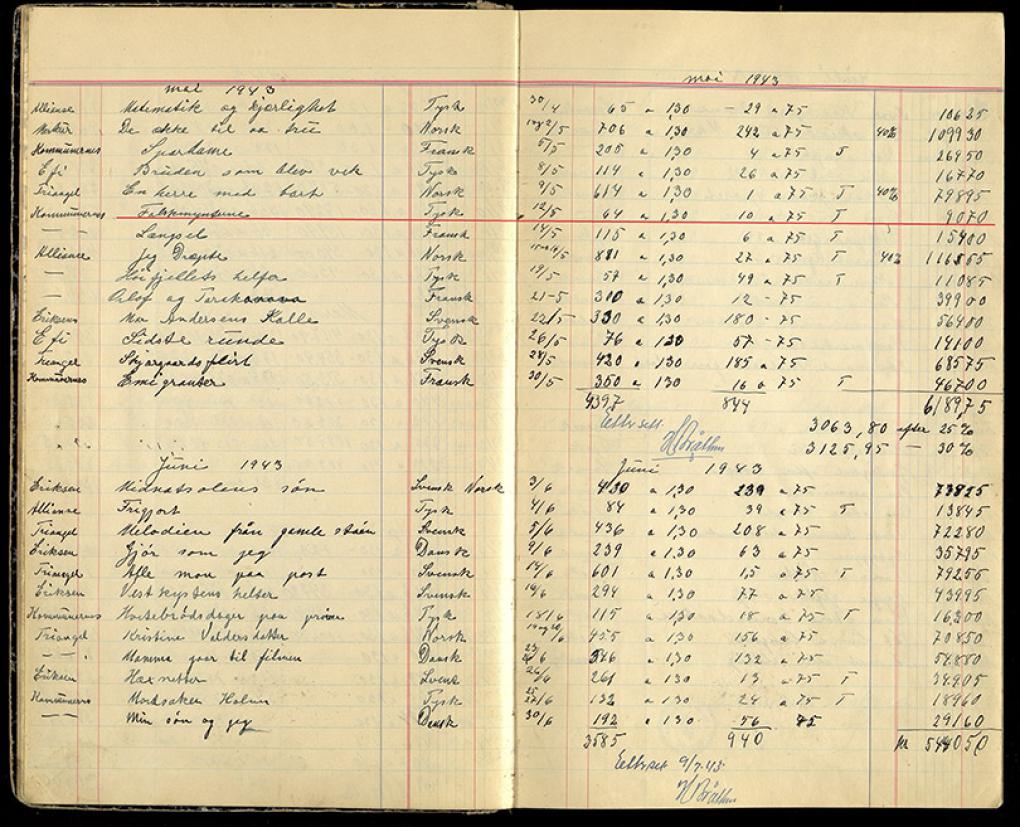 mai 1943 mai 1943
Allianse Matematik og kjærlighet Tysk 30/4 65 a 1,30 - 29 a 75 10625
Merkur De ække til aa tru Norsk 1 og 2/5 706 a 1,30 242 a 75 40% 109930
Kommunernes Fransk 5/5 205 a 1,30 4 a 75 T 26950
Efi Bruden som blev vek Tysk 8/5 114 a 1,30 26 a 75 16770
Triangel En herre med bart Norsk 9/5 614 a 1,30 1 a 75 T 40% 79895
Kommunernes Tysk 12/5 64 a 1,30 10 a 75 T 9070
— — Længsel Fransk 14/5 115 a 1,30 6 a 75 T 15400
Allianse Jeg Dræpte Norsk 881 a 1,30 27 a 75 T 40% 116555
— Høifjellets helfer Tysk 19/5 57 a 1,30 49 a 75 T 11085
— Olof og Fransk 21-5 310 a 1,30 12 - 75 39900
Eriksens Mor Andersens Kalle Svensk 22/5 330 a 1,30 180 - 75 56400
Efi Sidste runde Tysk 26/5 76 a 130 57 - 75 14100
Triangel Skjærgaardsflirt Svensk 28/5 420 a 130 185 a 75 68575
Kommunernes Emigranter Fransk 30/5 350 a 130 16 a 75 T 46700
4397 844 618975
Ettersett 3063,80 after 25%
3125,95 — 30%
Juni 1943 Juni 1943
Eriksen Midnatsolens søn Svensk Norsk 3/6 430 a 1,30 239 a 75 73825
Allianse Frigjort Tysk 4/6 84 a 1,30 39 a 75 T 13845
Triangel Melodien från gamle stan Svensk 5/6 436 a 1,30 208 a 75 72280
Eriksen Gjør som jeg Dansk 9/6 239 a 1.30 63 a 75 35795
Triangel Alle man paa post Svensk 14/6 601 a 1,30 15 a 75 T 79255
Eriksen Vestkystens helter Svensk 16/6 294 a 1,30 77 a 75 43995
Kommunernes Hvetebrødsdager paa prøve Tysk 18/6 115 a 1.30 18 a 75 T 16300
Triangel Kristine Valdersdatter Norsk 455 a 1.30 156 a 75 70850
— — . Mamma gaar til filmen Dansk 346 a 1,30 132 a 75 54880
Eriksen Haxnetter Svensk 26/6 261 a 1,30 13 a 75 T 34905
Kommunernes Mordsaken Holm Tysk 132 a 1.30 24 a 75 T 18960
— — Min søn og jeg Dansk 30/6 192 a 130 56 75 29160
3585 940 kr 544050
Ettersett 9/7.43